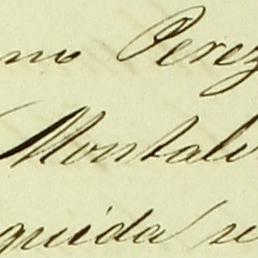 no Perez
Montal
guida se